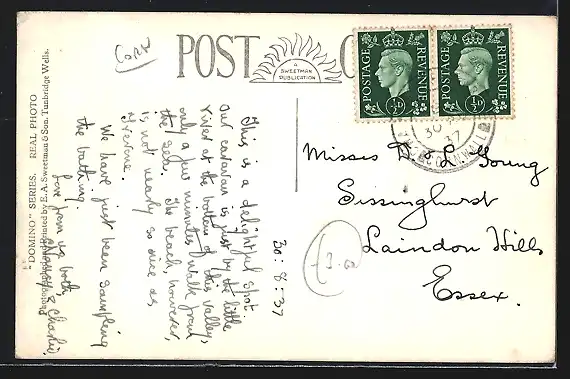 Corn
POST
C
A
SWEETMAN
PUBLICATION
POSTAGE REVENUE
½D
POSTAGE REVENUE
½D
30
37
This is a delightful spot.
Our caravan is just by the little
river at the bottom of this valley,
only a few minutes walk from
the sea. The beach, however,
is not nearly so nice as
We have just been sampling
the bathing.
Love from us both,
& Charlie.
30-8-37
Misses D & L Young
Sissinghurst
Laindon Hills
Essex.
"DOMINO" SERIES. REAL PHOTO
by E. A. Sweetman & Son. Tunbridge Wells.